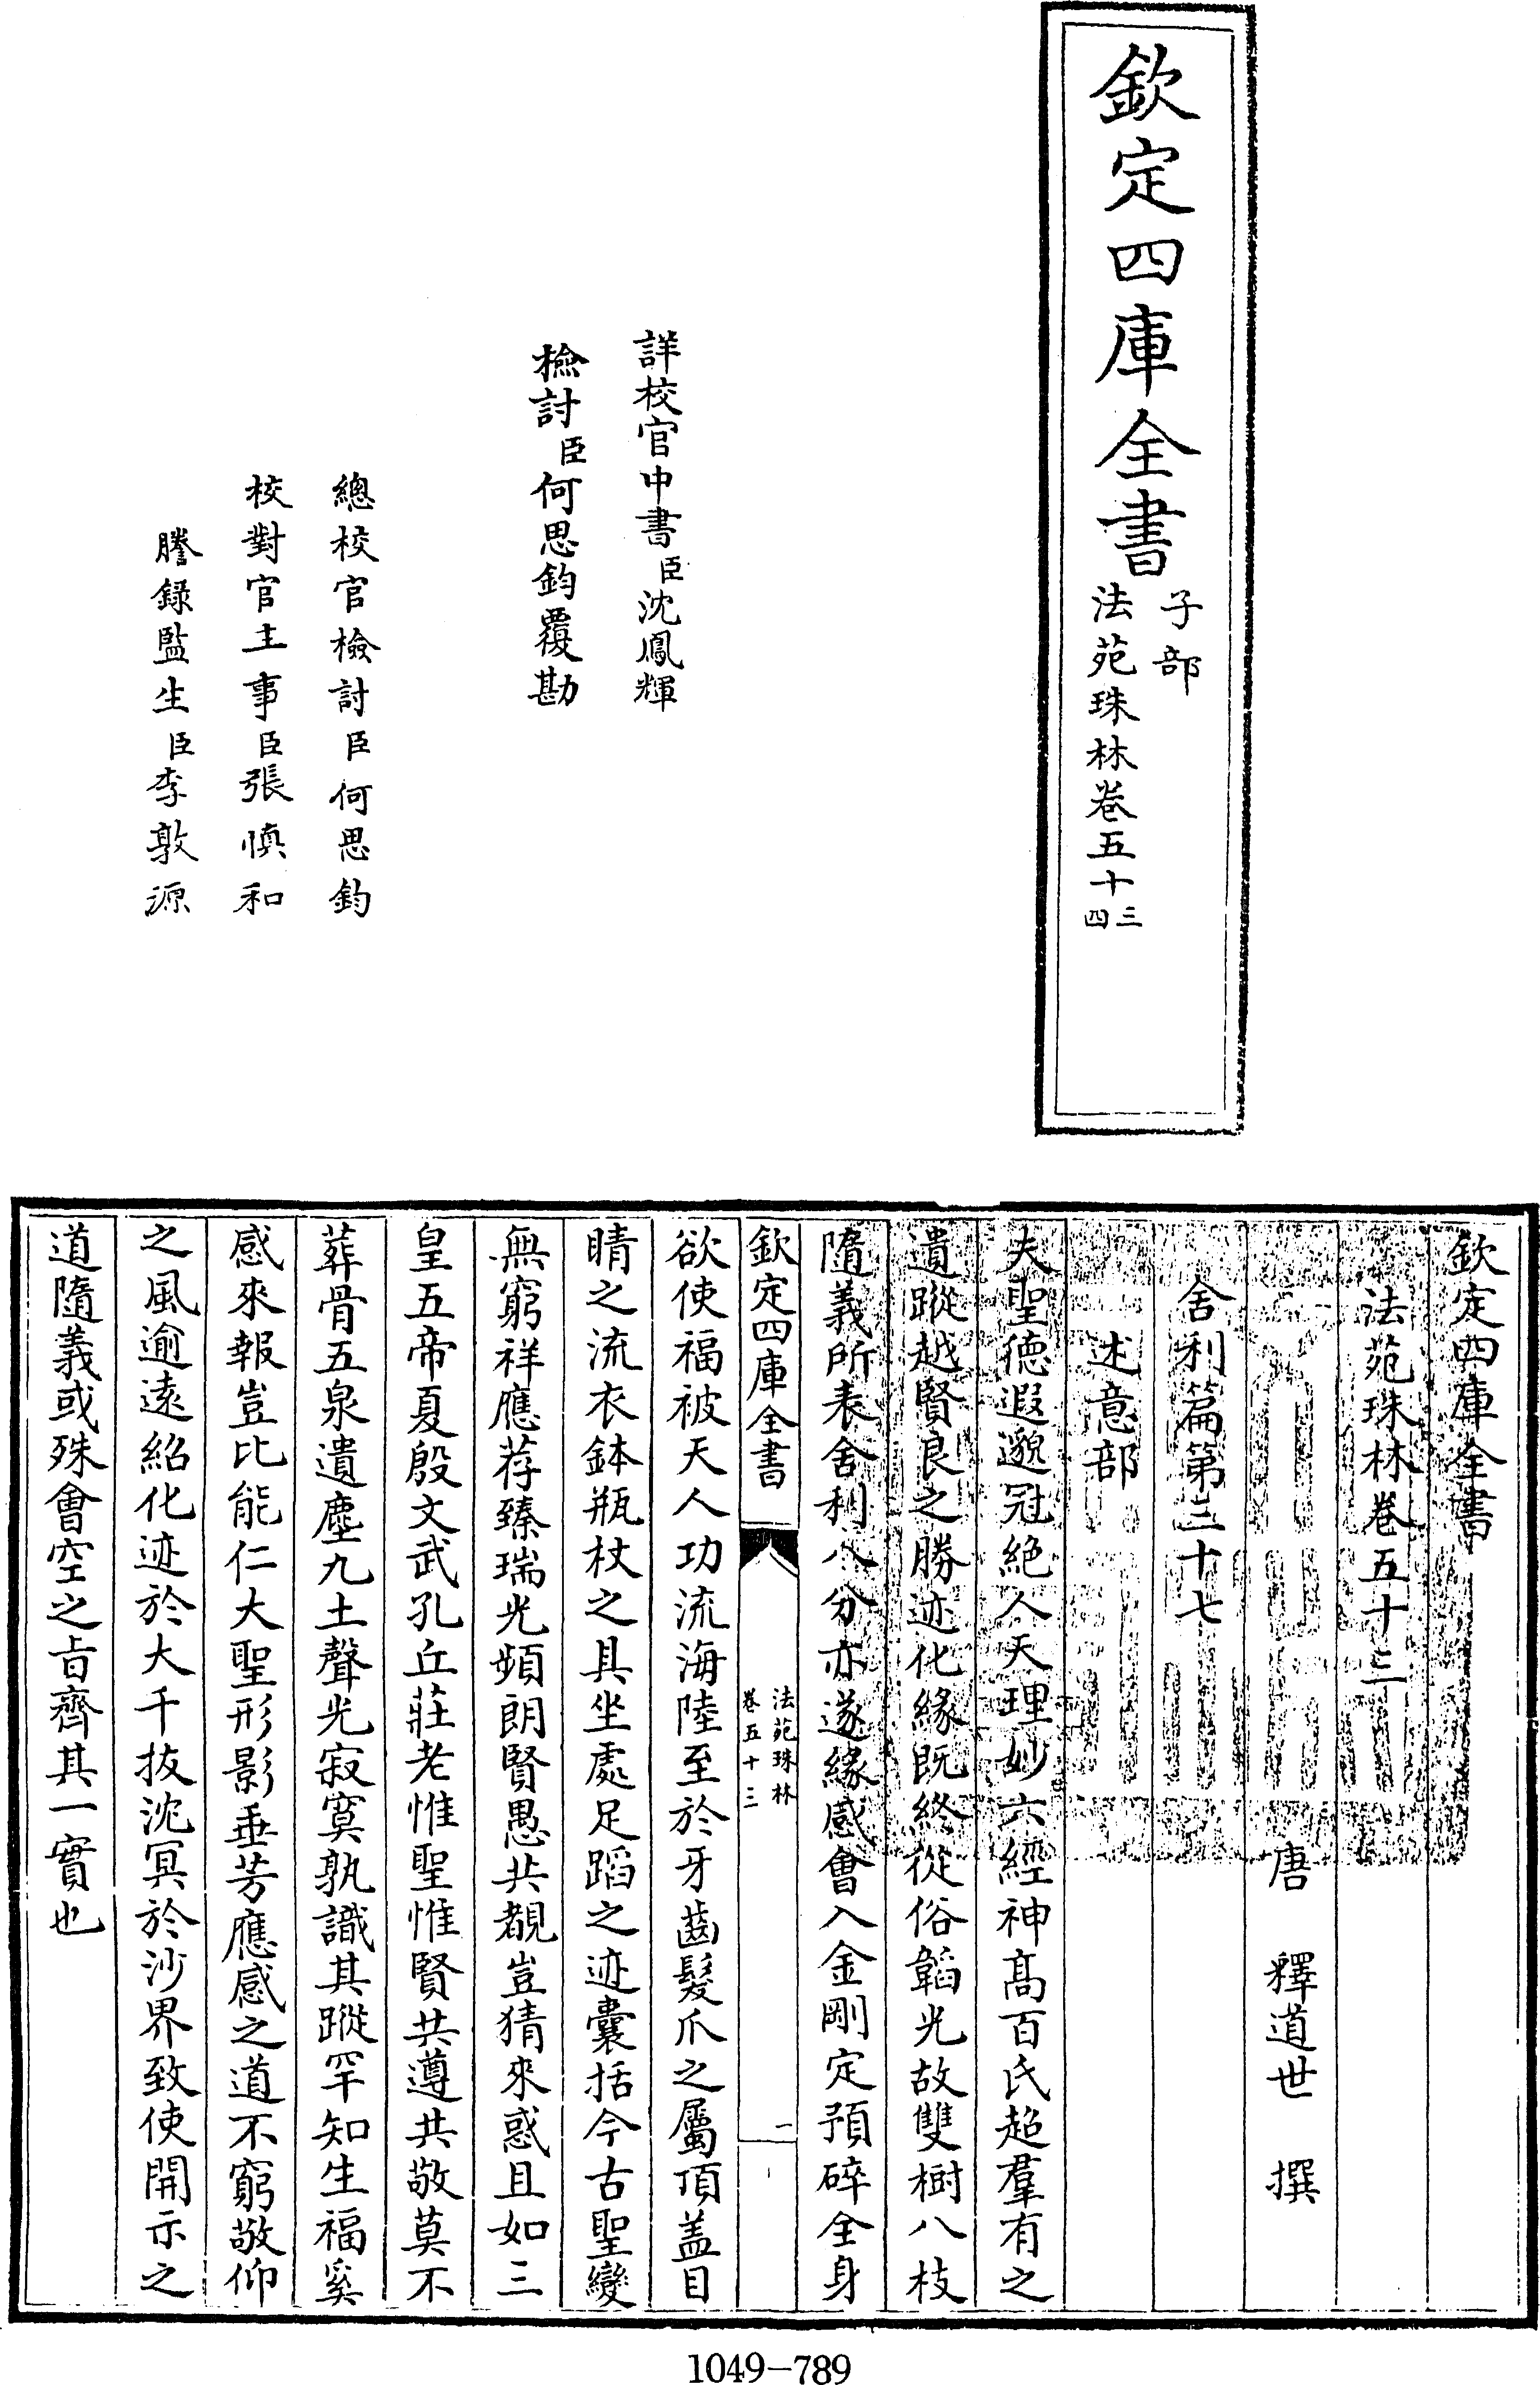 欽定四庫全書
子部
法苑珠林卷五十三四
詳校官中書臣沈鳳輝
檢討臣何思鈞覆勘
總校官檢討臣何思鈞
校對官主事臣張慎和
謄錄監生臣李敦源
欽定四庫全書
法苑珠林卷五十三
唐 釋道世 撰
舍利篇第三十七
述意部
夫聖德遐邈冠絶人天理妙六經神髙百氏超羣有之
遺蹤越賢良之勝迹化緣既終從俗韜光故雙樹八枝
隨義所表舍利八分亦遂緣感會入金剛定預碎全身
欽定四庫全書
法苑珠林
卷五十三
一
欲使福被天人功流海陸至於牙齒髮爪之屬頂盖目
睛之流衣鉢瓶杖之具坐處足蹈之迹囊括今古聖變
無窮祥應荐臻瑞光頻朗賢愚共覩豈猜來惑且如三
皇五帝夏殷文武孔丘莊老惟聖惟賢共遵共敬莫不
葬骨五泉遺塵九土聲光寂寞孰識其蹤罕知生福奚
感來報豈比能仁大聖形影垂芳應感之道不窮敬仰
之風逾遠紹化迹於大千拔沈冥於沙界致使開示之
道隨義或殊會空之旨齊其一實也
1049-789